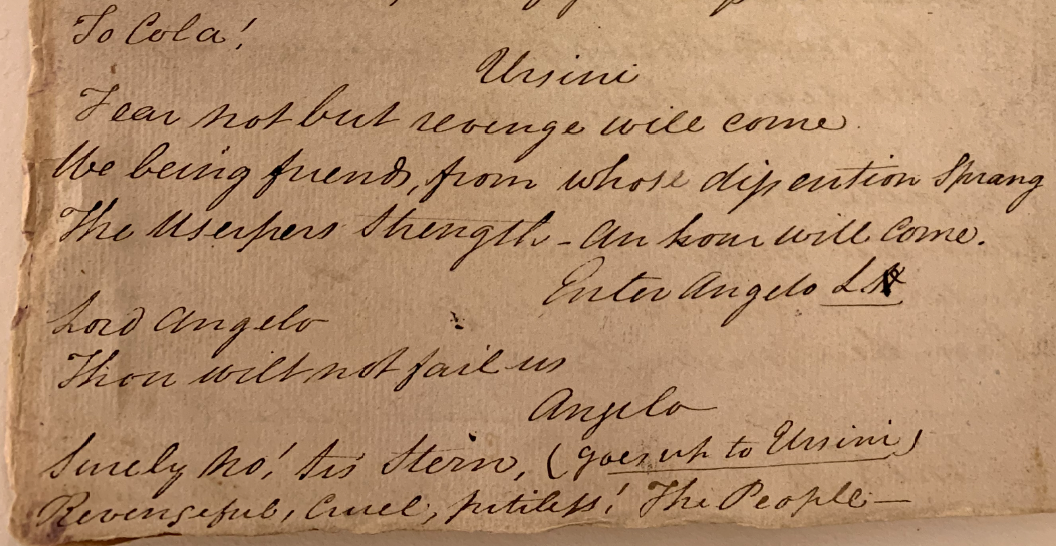 To Cola!
Ursini
Fear not but revenge will come
We being friends, from whose dissention Sprang
The Userpers Strength - An hour will Come.
Enter Angelo L H
Lord Angelo
Thou wilt not fail us
Angelo
Surely no! tis Stern, (goes up to Ursini)
Revengeful, Cruel, pitiless! The People—